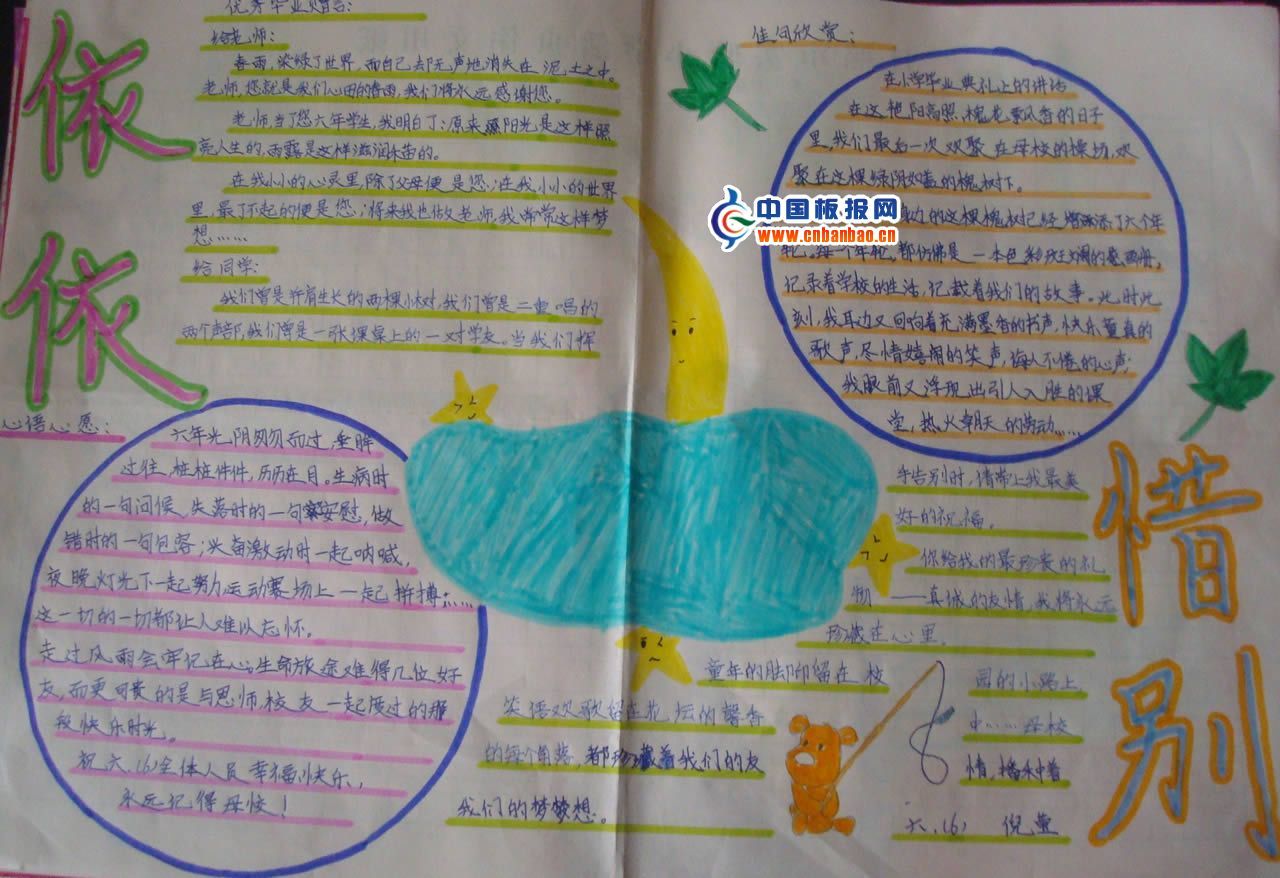 依依
惜别
优秀毕业赠言:
给老师:
春雨,染绿了世界,而自己却无声地消失在泥土之中。
老师,您就是我们心田的春雨,我们将永远感谢您。
老师,当了您六年学生,我明白了:原来阳光是这样照
亮人生的,雨露是这样滋润禾苗的。
在我小小的心灵里,除了父母便是您;在我小小的世界
里,最了不起的便是您;将来我也做老师,我常常这样梦
想……
给同学:
我们曾是并肩生长的两棵小树,我们曾是二重唱的
两个声部,我们曾是一张课桌上的一对学友。当我们挥
手告别时,请带上我最美
好的祝福。
你给我的最珍贵的礼
物——真诚的友情,我将永远
珍藏在心里。
童年的脚印留在校园的小路上,
笑语欢歌留在花坛的馨香中……母校
的每个角落,都珍藏着我们的友情,播种着
我们的梦梦想。
六.(6) 倪莹
心语心愿:
六年光阴匆匆而过,垂眸
过往,桩桩件件,历历在目。生病时
的一句问候,失落时的一句安慰,做
错时的一句包容;兴奋激动时一起呐喊,
夜晚灯光下一起努力,运动赛场上一起拼搏……
这一切的一切都让人难以忘怀。
走过风雨会牢记在心;生命旅途难得几位好
友,而更可贵的是与恩师,校友一起度过的那
段快乐时光。
祝六.(6)全体人员幸福快乐,
永远记得母校!
佳句欣赏:
在小学毕业典礼上的讲话
在这艳阳高照,槐花飘香的日子
里,我们最后一次欢聚在母校的操场,欢
聚在这棵绿阴如盖的槐树下。
的这棵槐树已经增添了六个年
轮。每一个年轮,都仿佛是一本色彩斑斓的画册,
记录着学校的生活,记载着我们的故事。此时此
刻,我耳边又回响着充满墨香的书声,快乐童真的
歌声,尽情嬉闹的笑声,诲人不倦的心声;
我眼前又浮现出引人入胜的课
堂,热火朝天的劳动……
中国板报网
www.cnbanbao.cn